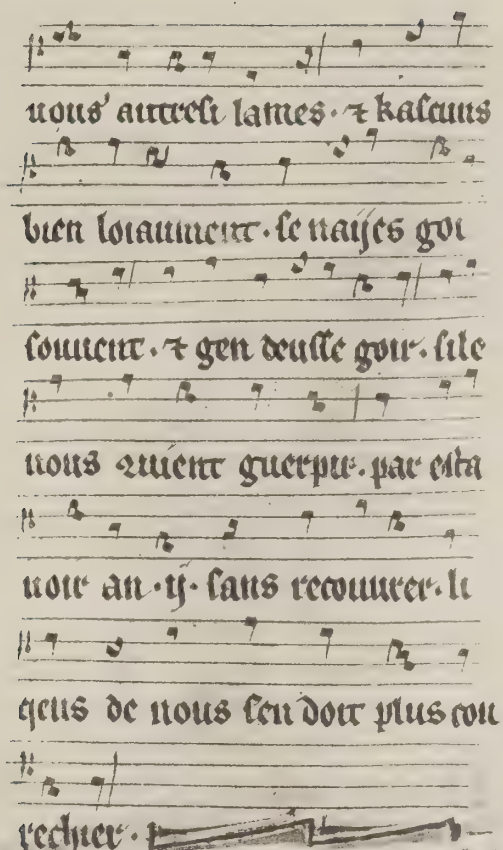 uous autresi lames · ⁊ kascuns
bien loiaument · se naijes goi
souuent · ⁊ gen deusse goir · sile
uous ⁊uient guerpir · par esta
uoir an · ij · sans recouurer · li
qeus de uous sen doit plus cou
rechier ·